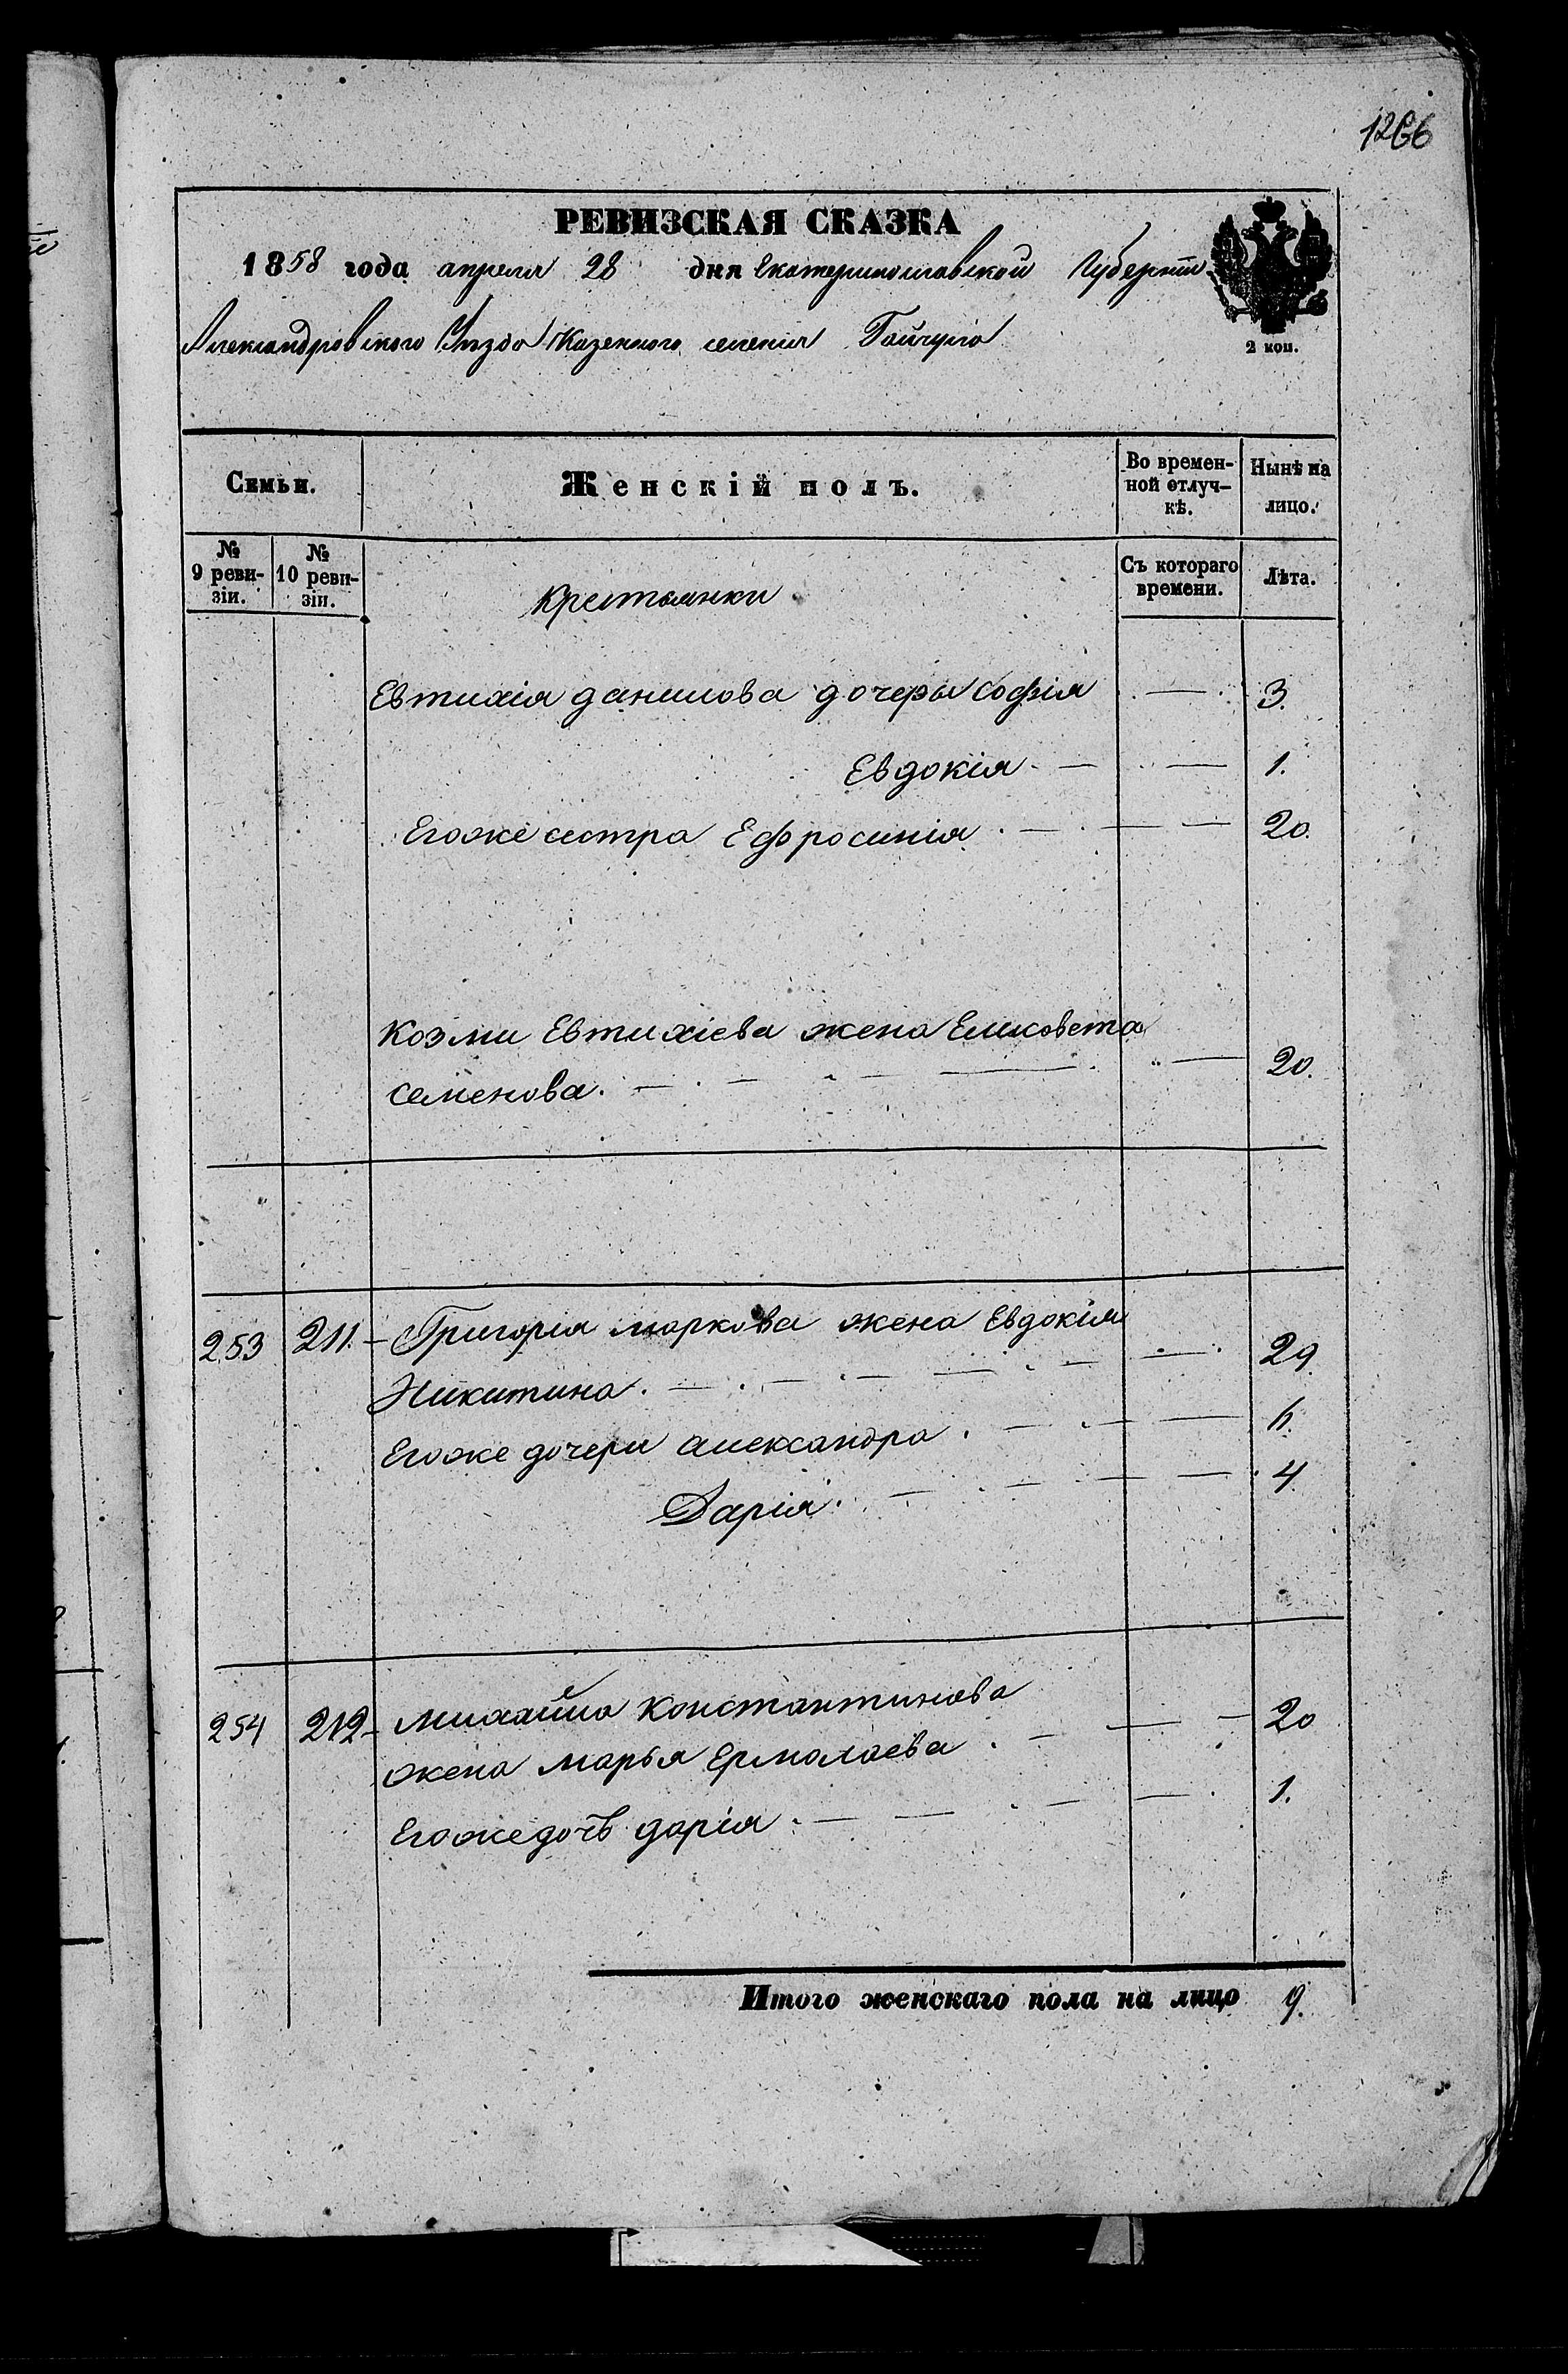 1266
РЕВИЗСКАЯ СКАЗКА
1858 года апреля 28 дня Екатеринославской Губернии
Александровского Уѣзда Казенного селения Гайчула
2 коп.
Семьи.
Женскій полъ.
Во времен-
ной отлуч-
кѣ.
Нынѣ на
лицо.
№
9 реви-
зіи.
№
10 реви-
зіи.
Крестьянки
Съ котораго
времени.
Лѣта.
Евтихія данилова дочеры Софія 3.
Евдокія 1.
Егоже сестра Ефросинія 20.
Козми Евтихіева жена Елисовета
семенова. 20.
253 211. Григорія маркова жена Евдокія
Никитина. 29.
Егоже дочери александра. 6.
Дарія. 4.
254 212 михайла Константинова
жена марья Ермолаева. 20
Егоже дочъ дарія. 1.
Итого женскаго пола на лицо 9.